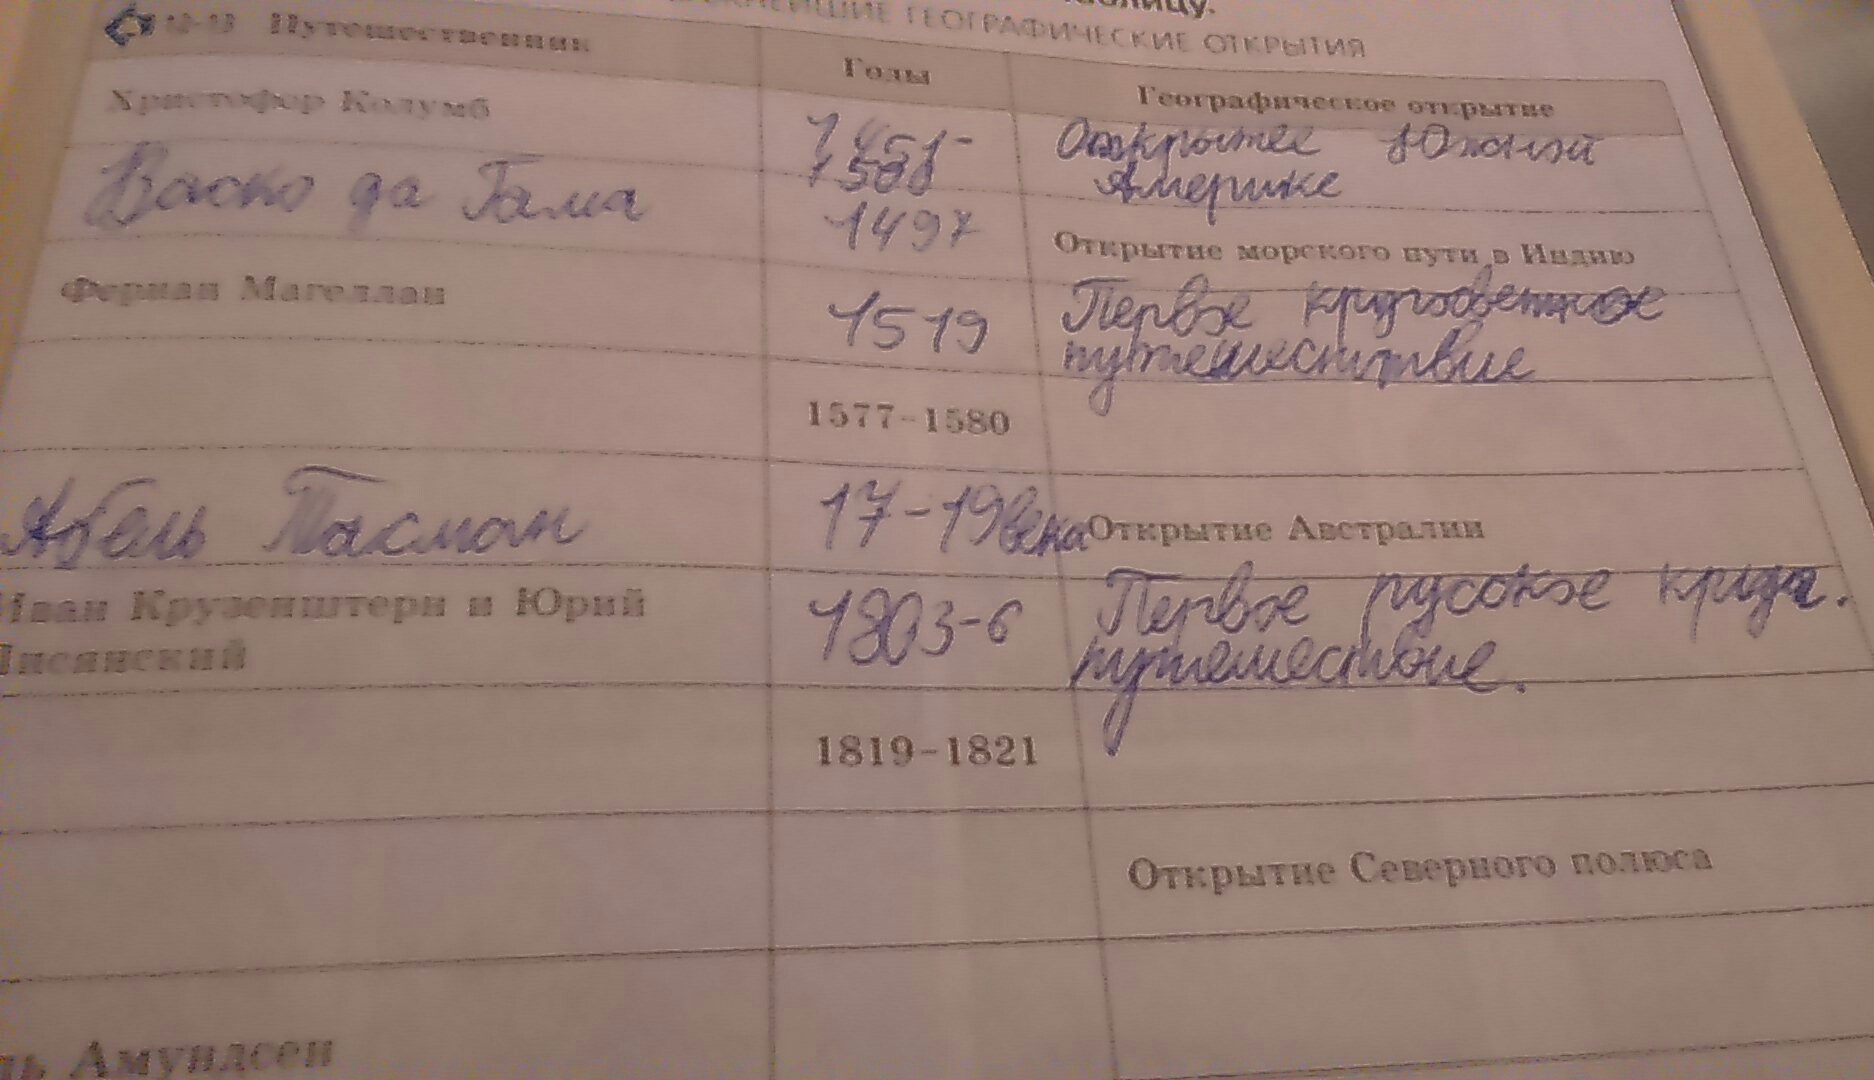 таблицу.
ВАЖНЕЙШИЕ ГЕОГРАФИЧЕСКИЕ ОТКРЫТИЯ
12-13 Путешественник Годы Географическое открытие
Христофор Колумб
Открытее Южной
Америке
Васко да Гама 1497 Открытие морского пути в Индию
Фернан Магеллан 1519 Первое кругосветное
путешествие
1577-1580
Абель Тасман 17-19 века Открытие Австралии
Иван Крузенштерн и Юрий 1803-6 Первое русское
Лисянский путешествие.
1819-1821
Открытие Северного полюса
Амундсен